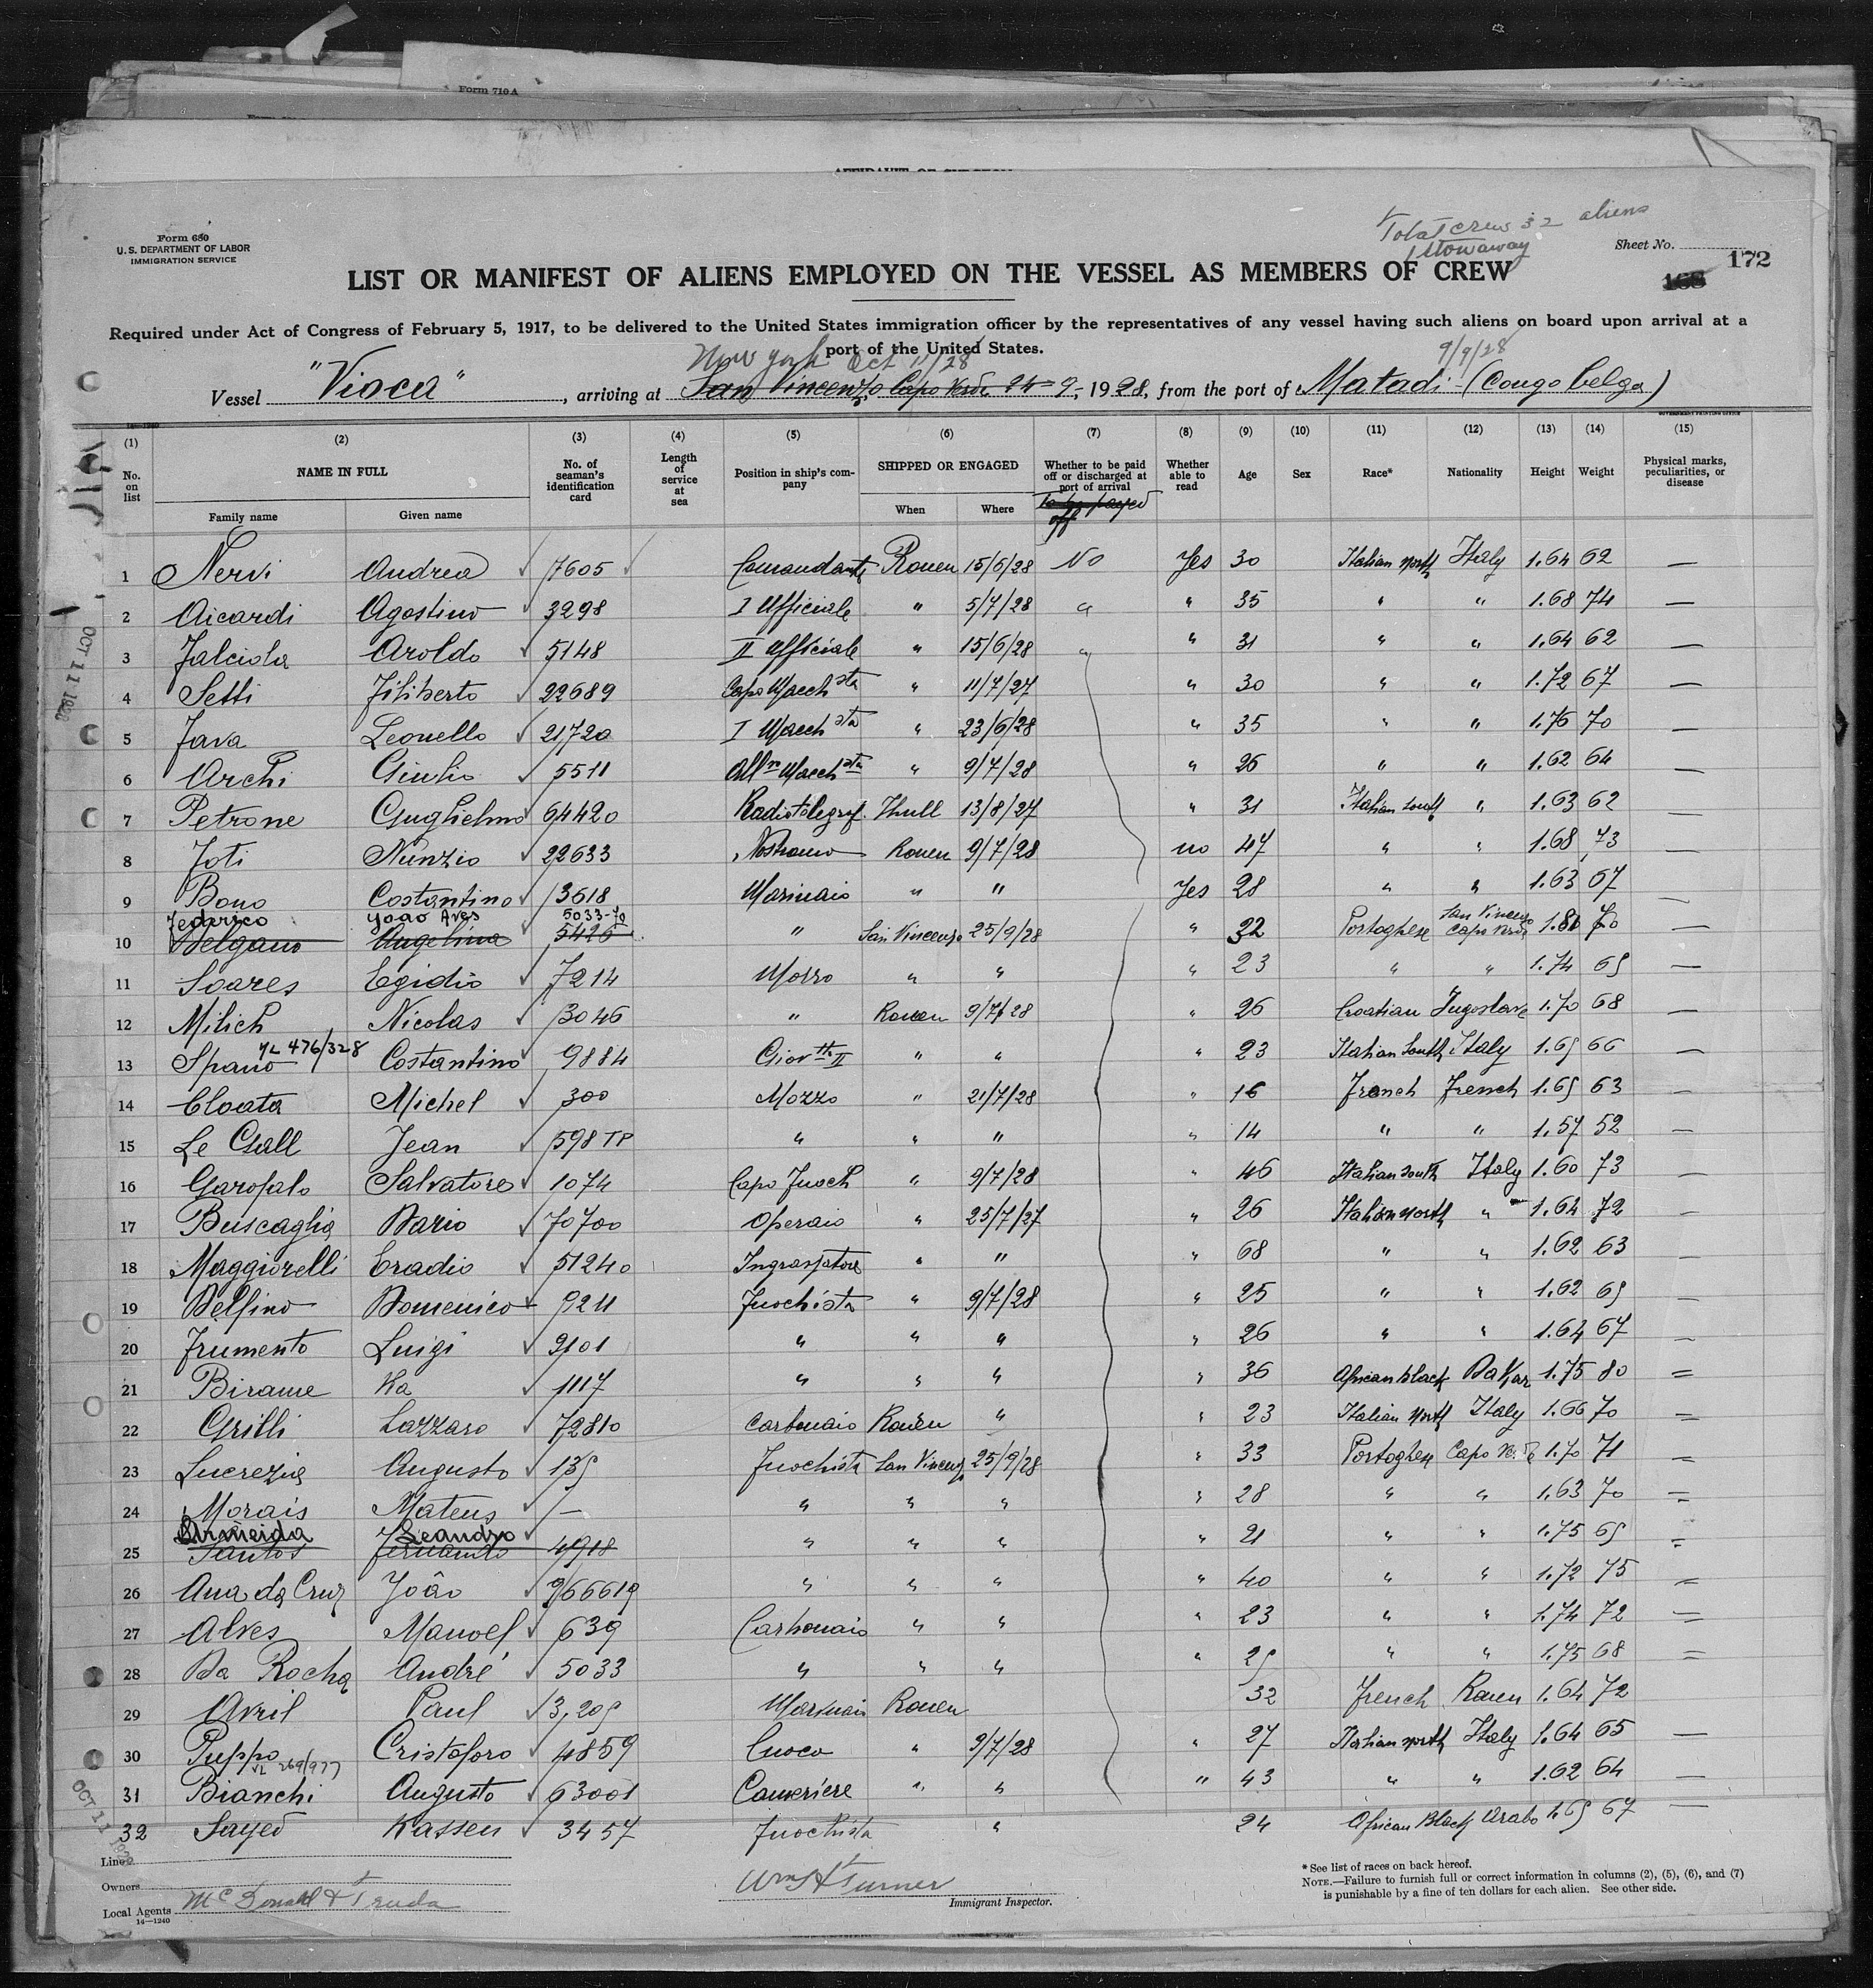 Form 710 A
AFFIDAVIT OF SURGEON
Form 680
U. S. DEPARTMENT OF LABOR
IMMIGRATION SERVICE
Total crew 32 aliens
1 stowaway
Sheet No.
168 172
LIST OR MANIFEST OF ALIENS EMPLOYED ON THE VESSEL AS MEMBERS OF CREW
Required under Act of Congress of February 5, 1917, to be delivered to the United States immigration officer by the representatives of any vessel having such aliens on board upon arrival at a
port of the United States.
New York Oct 11/28 9/9/28
Vessel "Vioca", arriving at San Vincenzo Capo Verde 24-9-, 1928, from the port of Matadi - (Congo belga)
14—1240 GOVERNMENT PRINTING OFFICE
(1) (2) (3) (4) (5) (6) (7) (8) (9) (10) (11) (12) (13) (14) (15)
No. on list NAME IN FULL No. of seaman's identification card Length of service at sea Position in ship's company SHIPPED OR ENGAGED Whether to be paid off or discharged at port of arrival Whether able to read Age Sex Race* Nationality Height Weight Physical marks, peculiarities, or disease
Family name Given name When Where To be payed off
1 Nervi Andrea 7605 Comandante Rouen 15/6/28 No Yes 30 Italian North Italy 1.64 62 —
2 Aicardi Agostino 3298 I Ufficiale " 5/7/28 " " 35 " " 1.68 74 —
3 Falciola Aroldo 5148 II Ufficiale " 15/6/28 " " 31 " " 1.64 62 —
4 Setti Filiberto 22689 Capo Macch sta " 11/7/27 " 30 " " 1.72 67 —
5 Fava Leonello 21720 I Macch sta " 23/6/28 " 35 " " 1.76 70 —
6 Archi Giulio 5511 All re Macch sta " 9/7/28 " 26 " " 1.62 64 —
7 Petrone Guglielmo 64420 Radiotelegraf. Hull 13/8/27 " 31 Italian South " 1.63 62 —
8 Foti Nunzio 22633 Nostromo Rouen 9/7/28 no 47 " " 1.68 73 —
9 Bono Costantino 13618 Marinaio " " Yes 28 " " 1.63 67 —
Federico Joao Aves 5033-70
10 Delgano Angelino 5426 " San Vincenzo 25/9/28 " 32 Portoghese San Vincenzo Capo Verde 1.80 70 —
11 Soares Egidio 7214 Mozzo " " " 23 " " 1.74 65 —
12 Milich Nicolas 3046 " Rouen 9/7/28 " 26 Croatian Jugoslave 1.70 68 —
VL 476/328
13 Spano Costantino 9884 Giov tto II " " " 23 Italian South Italy 1.65 66 —
14 Cloata Michel 300 Mozzo " 21/7/28 " 16 French French 1.65 63 —
15 Le Gall Jean 598 TP " " " " 14 " " 1.57 52 —
16 Garofalo Salvatore 1074 Capo Fuoch " 9/7/28 " 46 Italian South Italy 1.60 73 —
17 Buscaglia Dario 70700 Operaio " 25/7/27 " 26 Italian North " 1.64 72 —
18 Maggiorelli Eradio 51240 Ingrassatore " " " 68 " " 1.62 63 —
19 Delfino Domenico 9211 Fuochista " 9/7/28 " 25 " " 1.62 65 —
20 Frumento Luigi 2101 " " " " 26 " " 1.64 67 —
21 Birame Ka 1117 " " " " 36 African black Dakar 1.75 80 =
22 Grilli Lazzaro 72810 Carbonaio Rouen " " 23 Italian North Italy 1.66 70 =
23 Lucrezia Augusto 135 Fuochista San Vincenzo 25/9/28 " 33 Portoghese Capo Verde 1.70 71 =
24 Morais Mateus — " " " " 28 " " 1.63 70 =
Almeida Leandro
25 Santos Fernando 4918 " " " " 21 " " 1.75 65 =
26 Ana da Cruz João 966619 " " " " 40 " " 1.72 75 =
27 Alves Manoel 639 Carbonaio " " " 23 " " 1.74 72 =
28 Da Rocha André 5033 " " " " 25 " " 1.75 68 =
29 Avril Paul 3,205 Marinaio Rouen 32 French Rouen 1.64 72
30 Puppo Cristoforo 4859 Cuoco " 9/7/28 " 27 Italian North Italy 1.64 65 —
VL 269/977
31 Bianchi Augusto 63001 Cameriere " " " 43 " " 1.62 64 —
32 Sayed Kassen 3457 Fuochista " 24 African Black Arabo 1.65 67 —
OCT 11 1928
OCT 11 1928
Line
Owners
Local Agents McDonald & Truda
14—1240
Wm H Turner
Immigrant Inspector.
* See list of races on back hereof.
NOTE.—Failure to furnish full or correct information in columns (2), (5), (6), and (7)
is punishable by a fine of ten dollars for each alien. See other side.